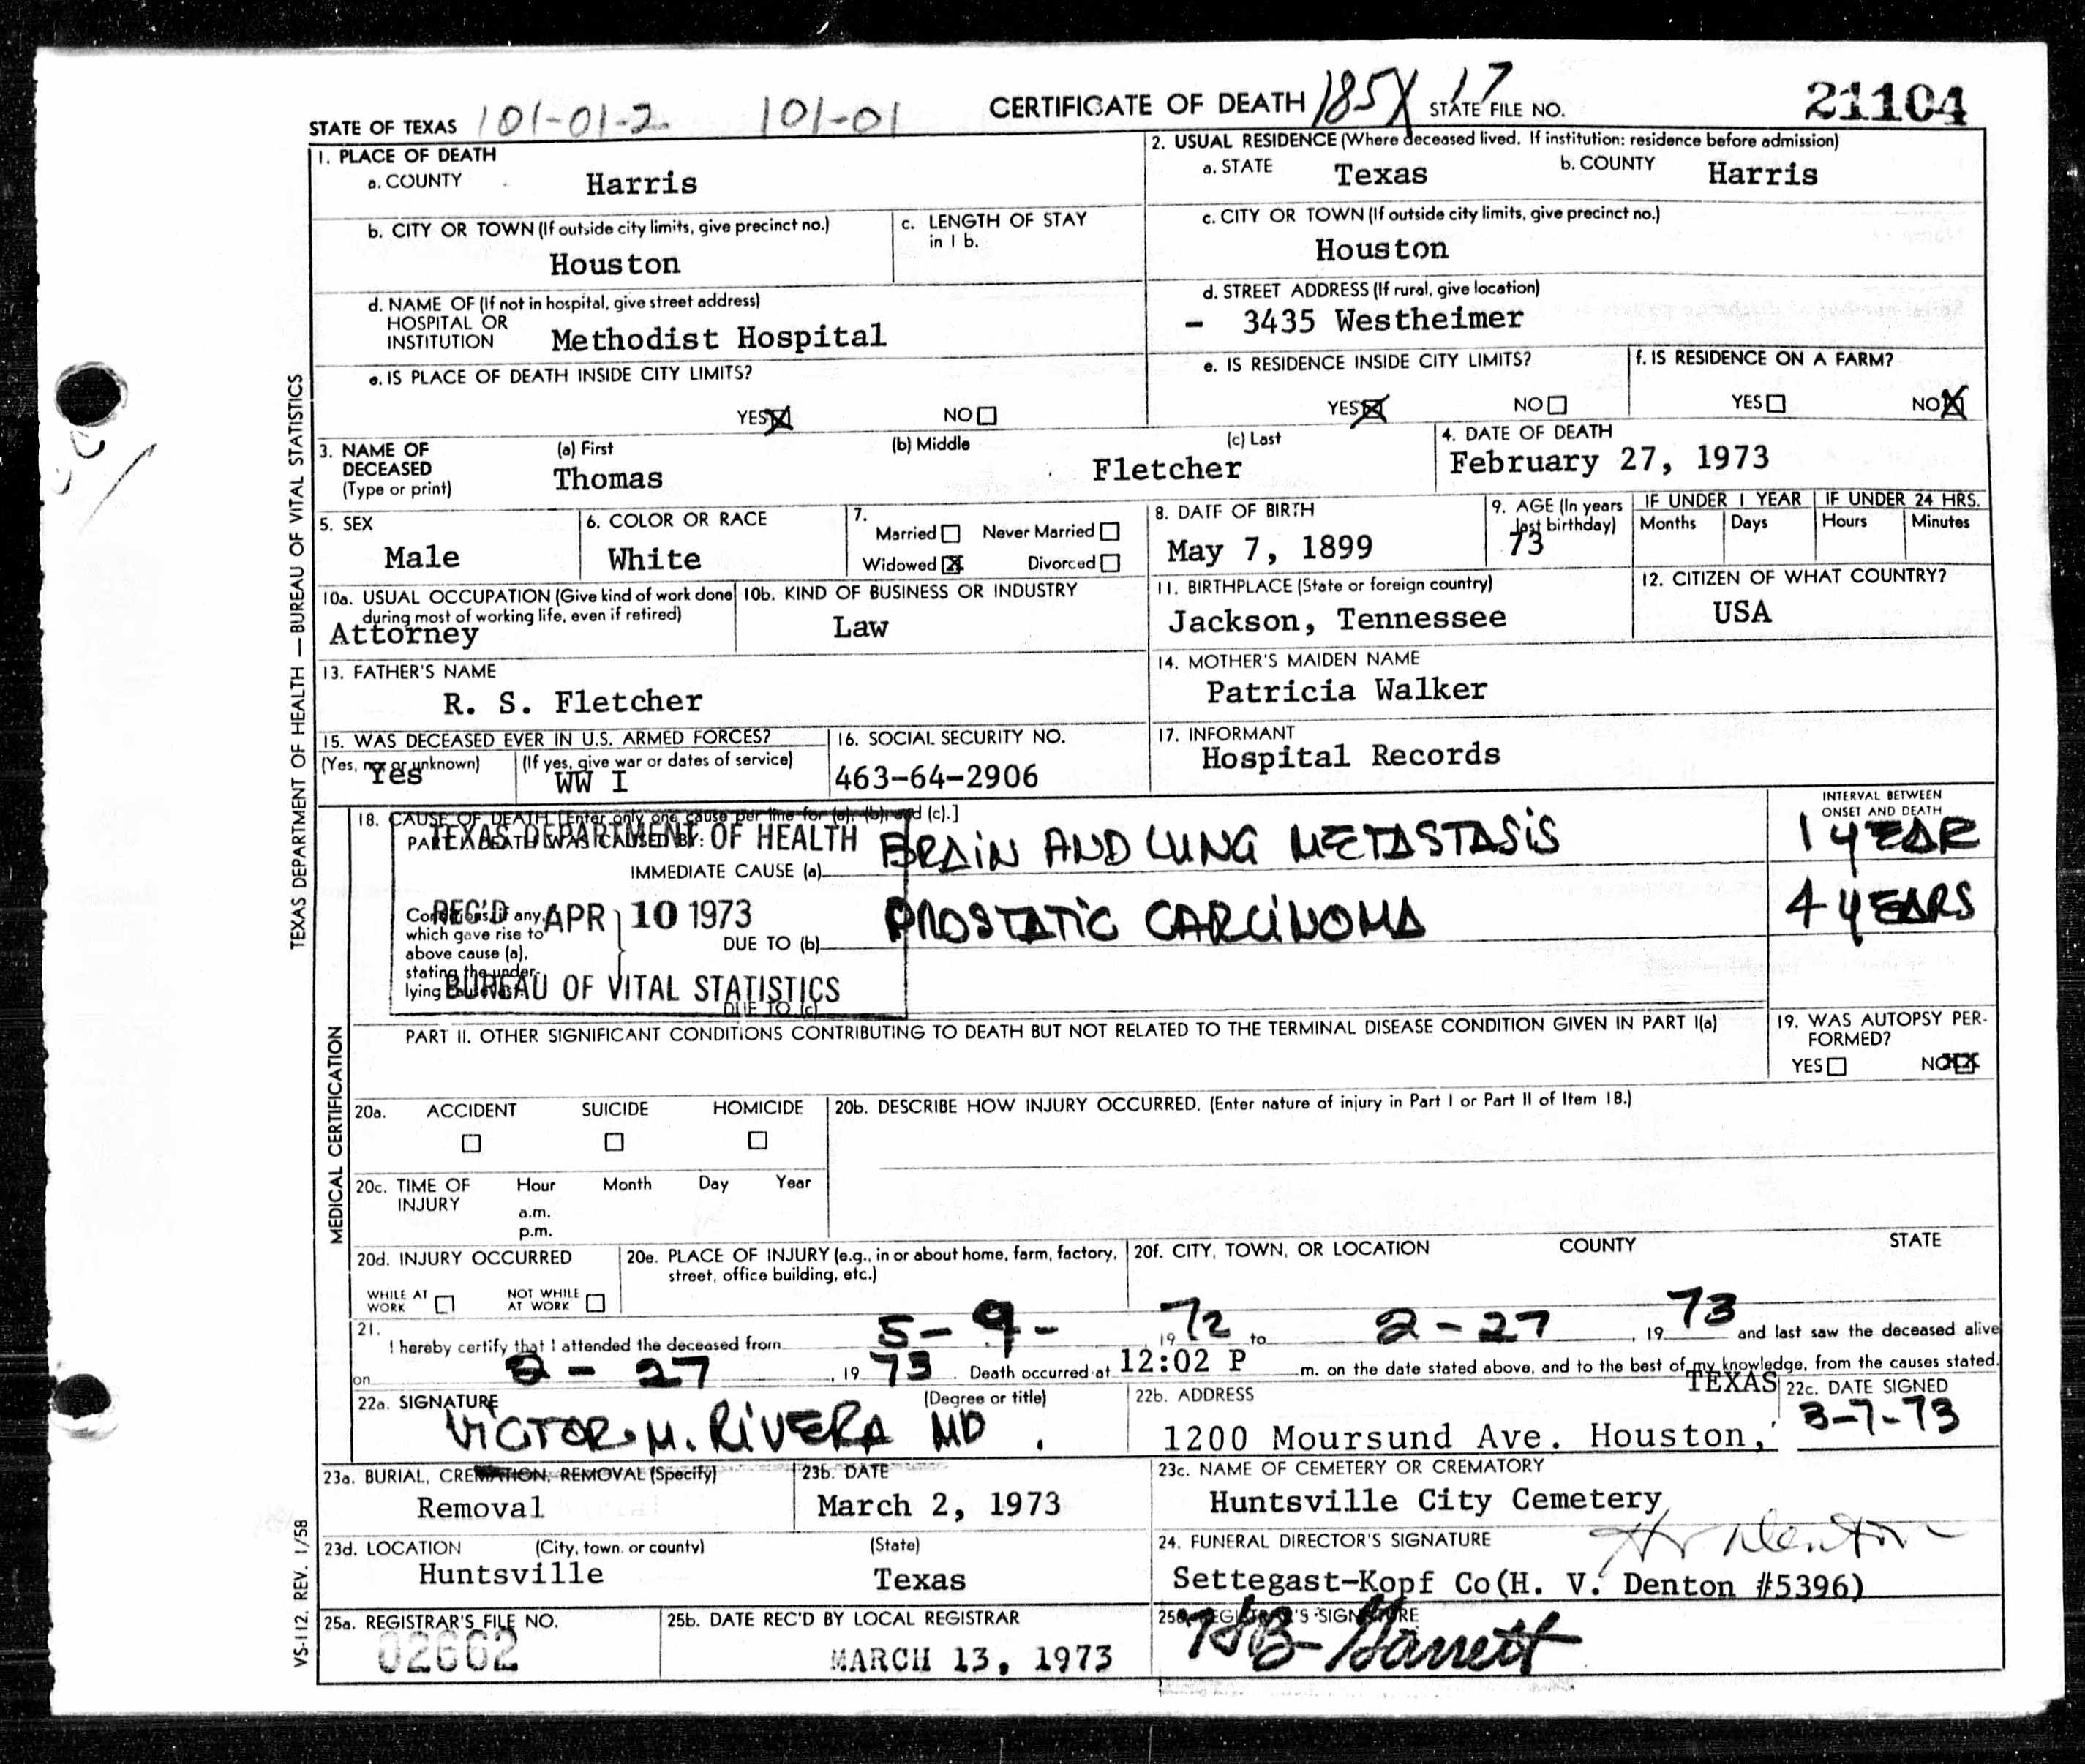 STATE OF TEXAS 101-01-2 101-01 CERTIFICATE OF DEATH 185X 17 STATE FILE NO. 21104
1. PLACE OF DEATH
a. COUNTY Harris
2. USUAL RESIDENCE (Where deceased lived. If institution: residence before admission)
a. STATE Texas b. COUNTY Harris
b. CITY OR TOWN (If outside city limits, give precinct no.)
Houston
c. LENGTH OF STAY
in 1 b.
c. CITY OR TOWN (If outside city limits, give precinct no.)
Houston
d. NAME OF (If not in hospital, give street address)
HOSPITAL OR
INSTITUTION Methodist Hospital
d. STREET ADDRESS (If rural, give location)
- 3435 Westheimer
e. IS PLACE OF DEATH INSIDE CITY LIMITS?
YES NO
e. IS RESIDENCE INSIDE CITY LIMITS?
YES NO
f. IS RESIDENCE ON A FARM?
YES NO
3. NAME OF
DECEASED
(Type or print)
(a) First (b) Middle (c) Last
Thomas Fletcher
4. DATE OF DEATH
February 27, 1973
5. SEX
Male
6. COLOR OR RACE
White
7.
Married Never Married
Widowed Divorced
8. DATE OF BIRTH
May 7, 1899
9. AGE (In years
last birthday)
73
IF UNDER 1 YEAR IF UNDER 24 HRS.
Months Days Hours Minutes
10a. USUAL OCCUPATION (Give kind of work done
during most of working life, even if retired)
Attorney
10b. KIND OF BUSINESS OR INDUSTRY
Law
11. BIRTHPLACE (State or foreign country)
Jackson, Tennessee
12. CITIZEN OF WHAT COUNTRY?
USA
13. FATHER'S NAME
R. S. Fletcher
14. MOTHER'S MAIDEN NAME
Patricia Walker
15. WAS DECEASED EVER IN U.S. ARMED FORCES?
(Yes, no, or unknown) (If yes, give war or dates of service)
Yes WW I
16. SOCIAL SECURITY NO.
463-64-2906
17. INFORMANT
Hospital Records
18. CAUSE OF DEATH [Enter only one cause per line for (a), (b), and (c).]
PART I. DEATH WAS CAUSED BY:
TEXAS DEPARTMENT OF HEALTH
IMMEDIATE CAUSE (a) BRAIN AND LUNG METASTASIS
INTERVAL BETWEEN
ONSET AND DEATH
1 YEAR
REC'D APR 10 1973
Conditions, if any,
which gave rise to
above cause (a),
stating the under-
lying cause last.
DUE TO (b) PROSTATIC CARCINOMA
4 YEARS
BUREAU OF VITAL STATISTICS
DUE TO (c)
PART II. OTHER SIGNIFICANT CONDITIONS CONTRIBUTING TO DEATH BUT NOT RELATED TO THE TERMINAL DISEASE CONDITION GIVEN IN PART I(a)
19. WAS AUTOPSY PER-
FORMED?
YES NO
20a. ACCIDENT SUICIDE HOMICIDE
20b. DESCRIBE HOW INJURY OCCURRED. (Enter nature of injury in Part I or Part II of Item 18.)
20c. TIME OF
INJURY
Hour Month Day Year
a.m.
p.m.
20d. INJURY OCCURRED
WHILE AT
WORK
NOT WHILE
AT WORK
20e. PLACE OF INJURY (e.g., in or about home, farm, factory,
street, office building, etc.)
20f. CITY, TOWN, OR LOCATION COUNTY STATE
21.
I hereby certify that I attended the deceased from 5-9- , 19 72 to 2-27 , 19 73 and last saw the deceased alive
on 2-27 , 19 73 . Death occurred at 12:02 P m. on the date stated above, and to the best of my knowledge, from the causes stated.
22a. SIGNATURE (Degree or title)
VICTOR M. RIVERA MD.
22b. ADDRESS
1200 Moursund Ave. Houston, TEXAS
22c. DATE SIGNED
3-7-73
23a. BURIAL, CREMATION, REMOVAL (Specify)
Removal
23b. DATE
March 2, 1973
23c. NAME OF CEMETERY OR CREMATORY
Huntsville City Cemetery
23d. LOCATION (City, town, or county) (State)
Huntsville Texas
24. FUNERAL DIRECTOR'S SIGNATURE
HV Denton
Settegast-Kopf Co(H. V. Denton #5396)
25a. REGISTRAR'S FILE NO.
02662
25b. DATE REC'D BY LOCAL REGISTRAR
MARCH 13, 1973
25c. REGISTRAR'S SIGNATURE
HB Garrett
TEXAS DEPARTMENT OF HEALTH — BUREAU OF VITAL STATISTICS
MEDICAL CERTIFICATION
VS-112, REV. 1/58